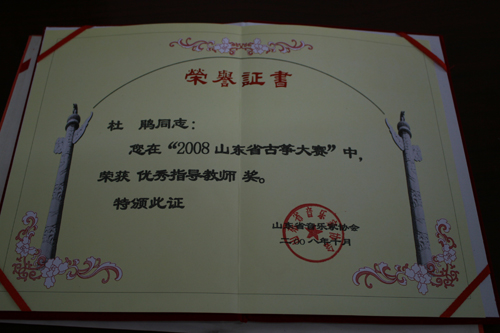 荣誉証書
杜 鹃同志：
您在“2008山东省古筝大赛”中，
荣获 优秀指导教师 奖。
特颁此证
山东省音乐家协会
二〇〇八年十月